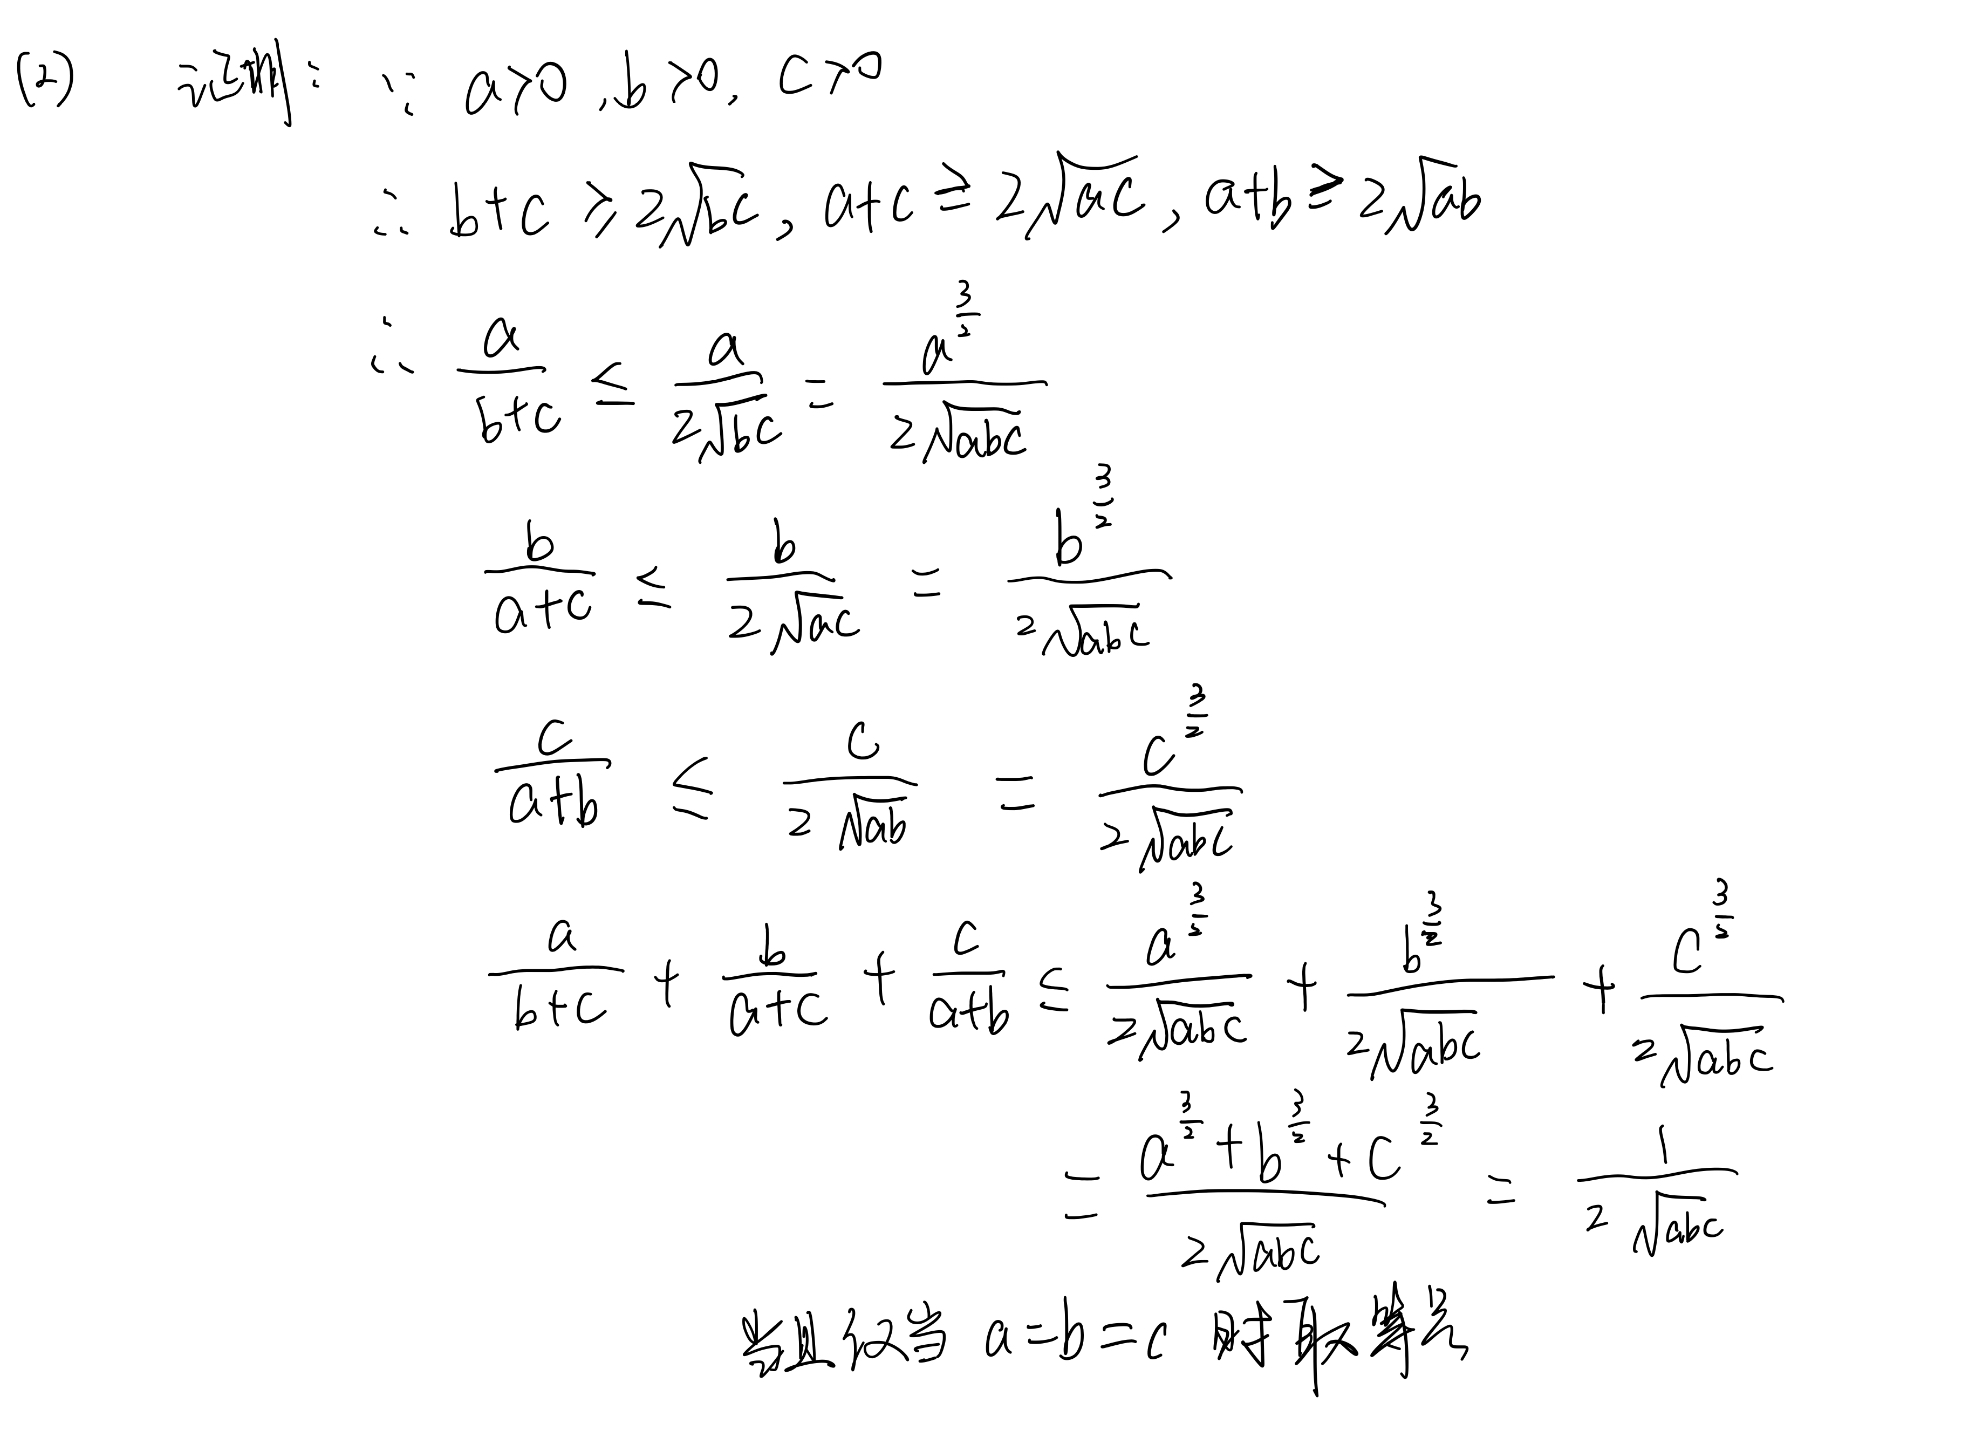 (2) 证明: ∵ a>0, b>0, c>0
∴ b+c ≥ 2√bc, a+c ≥ 2√ac, a+b ≥ 2√ab
∴ a/(b+c) ≤ a/(2√bc) = a^(3/2)/(2√abc)
b/(a+c) ≤ b/(2√ac) = b^(3/2)/(2√abc)
c/(a+b) ≤ c/(2√ab) = c^(3/2)/(2√abc)
a/(b+c) + b/(a+c) + c/(a+b) ≤ a^(3/2)/(2√abc) + b^(3/2)/(2√abc) + c^(3/2)/(2√abc)
= (a^(3/2)+b^(3/2)+c^(3/2))/(2√abc) = 1/(2√abc)
当且仅当 a=b=c 时取等号